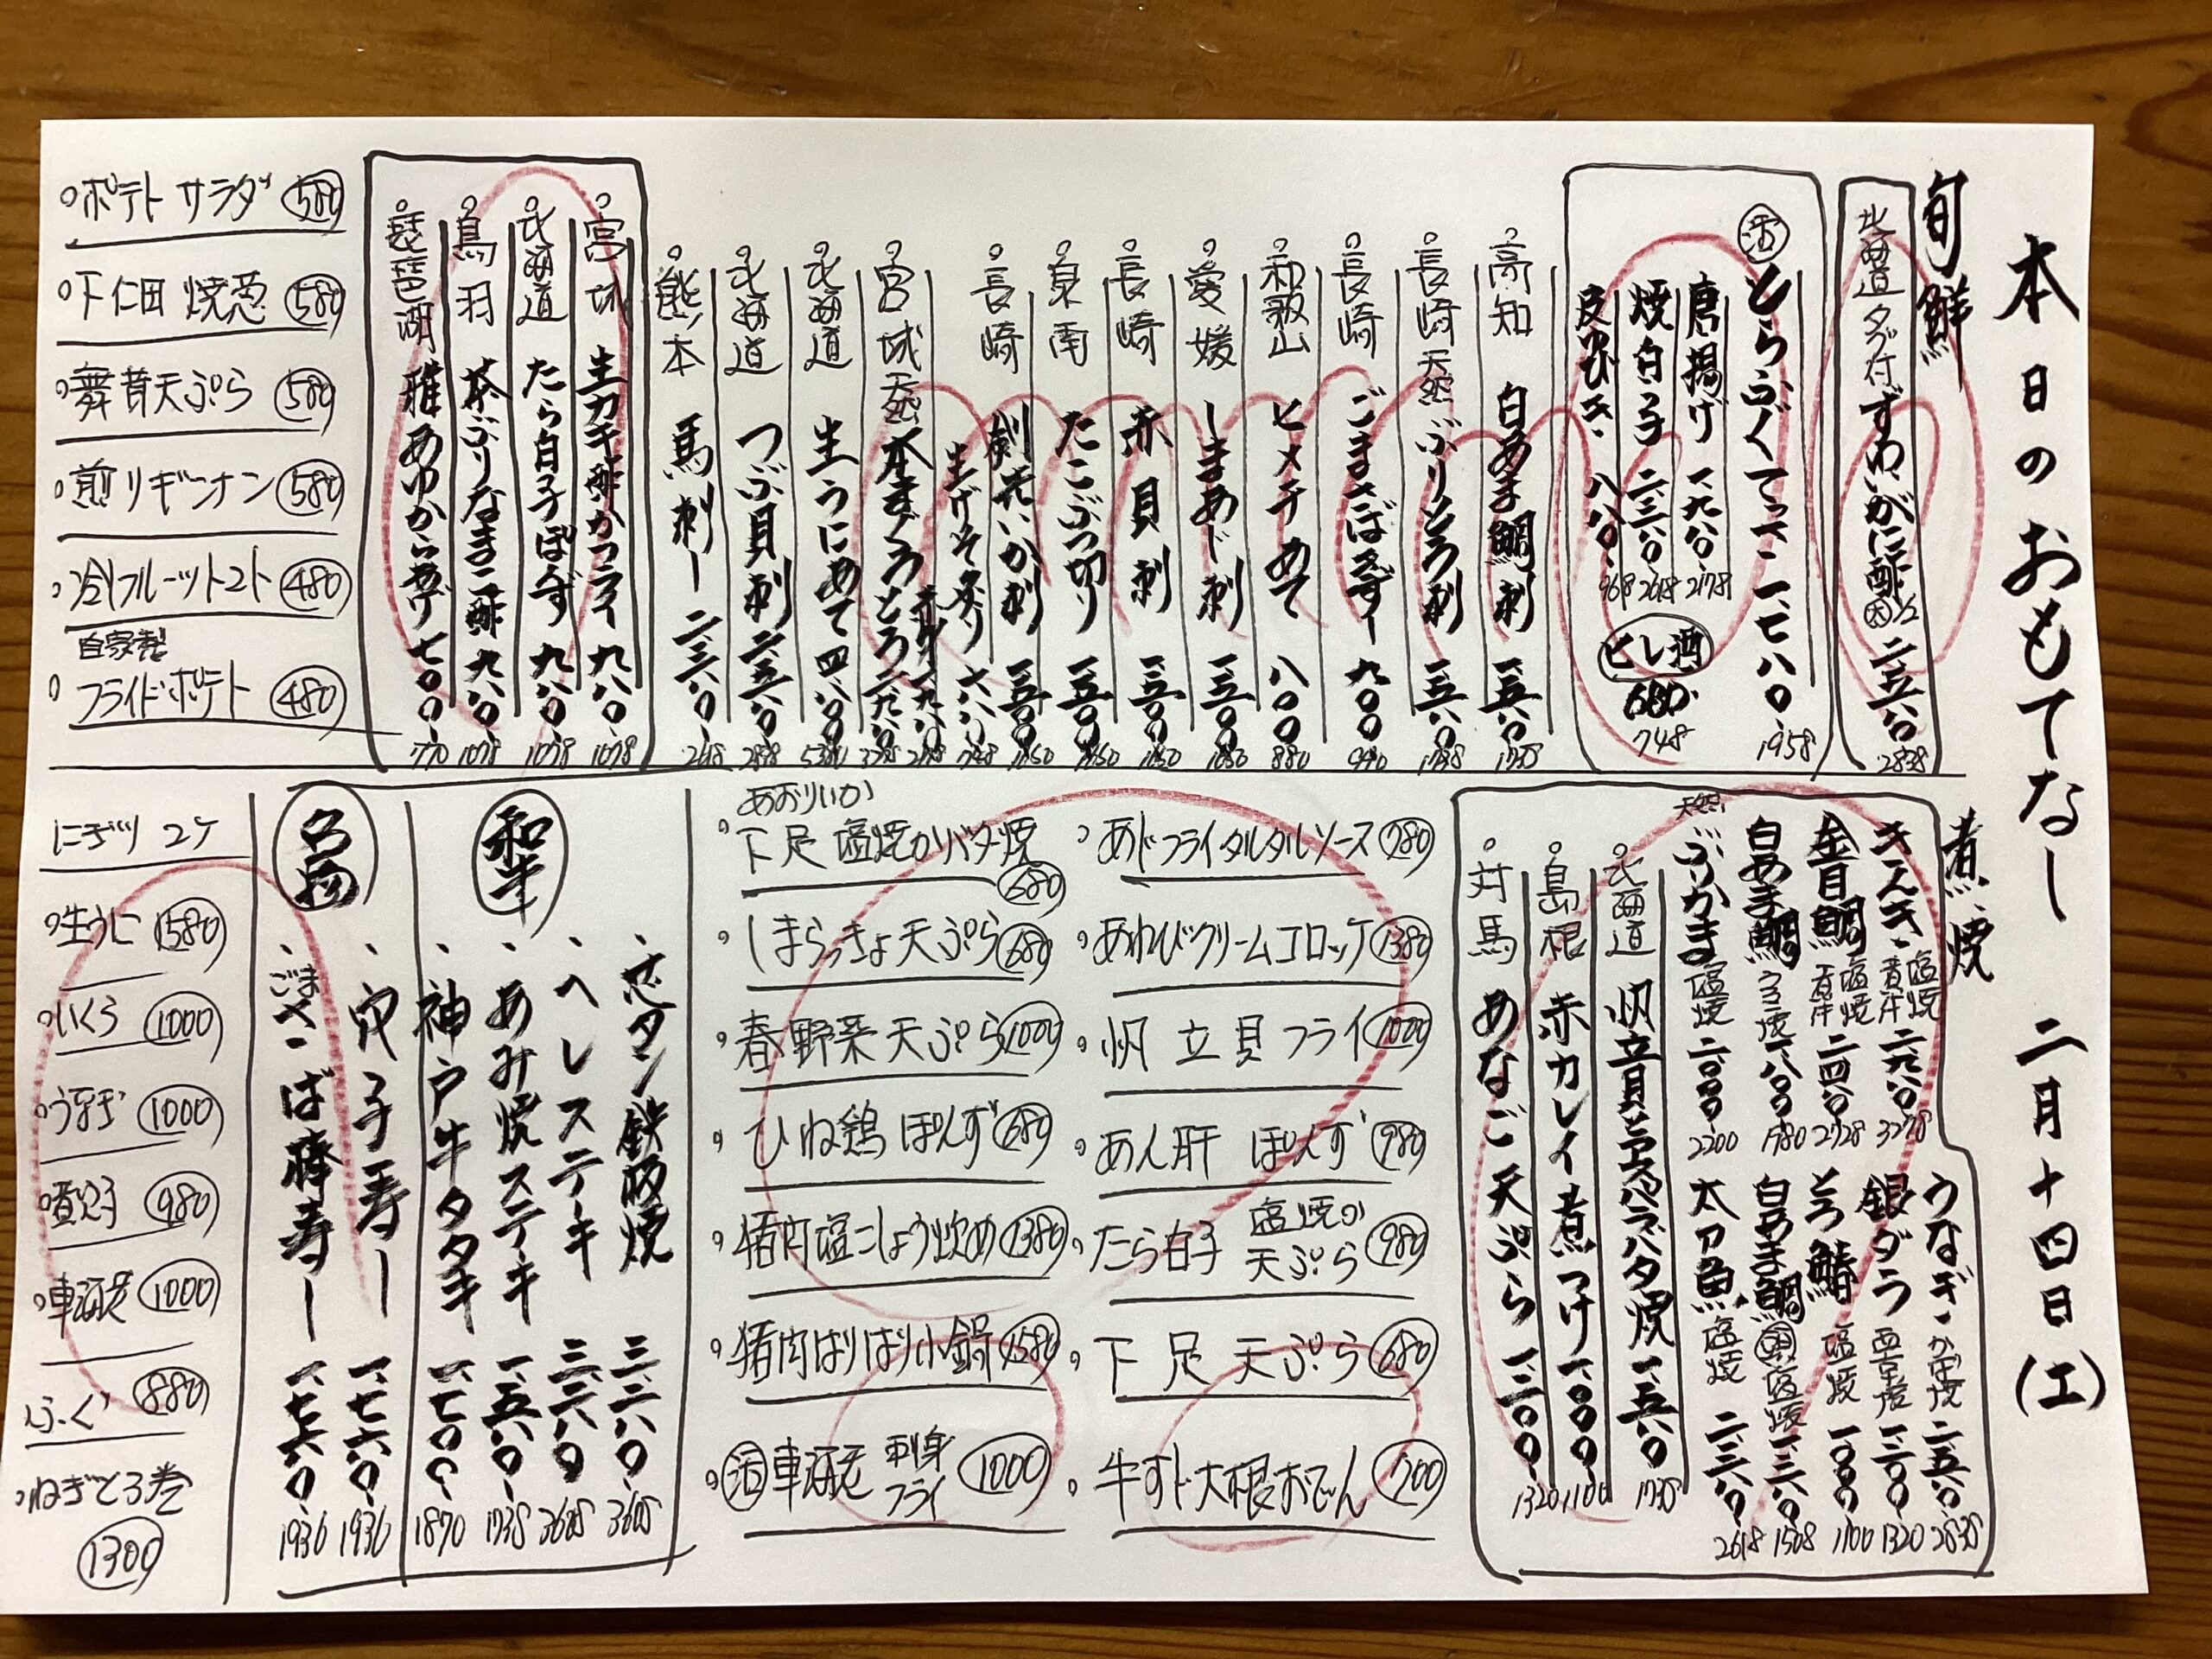 本日のおもてなし 二月十四日(土)
旬鮮
北海道 タグ付 ずわいがに酢 大1/2 二、五八〇 2838
活 とらふぐてっさ 一、七八〇 1958
唐揚げ 一、九八〇 2178
焼白子 二、三八〇 2618
皮ゆびき 八八〇 968
ヒレ酒 680 748
高知 白あま鯛刺 一、五八〇 1738
長崎 天然 ぶりとろ刺 一、五八〇 1738
長崎 ごまさばきずし 九〇〇 990
和歌山 ヒメチあて 八〇〇 880
愛媛 しまあじ刺 一、五〇〇 1650
長崎 赤貝刺 一、五〇〇 1650
泉南 たこぶつ切り 一、五〇〇 1650
長崎 剣先いか刺 一、五〇〇 1650
生げそ炙り 六八〇 748
宮城 天然 本まぐろ とろ 二、九八〇 3278
赤身 一、九八〇 2178
北海道 生うにあて 四、八〇〇
北海道 つぶ貝刺 二、五八〇 2838
熊本 馬刺し 二、三八〇 2618
宮城 生カキ酢かフライ 九八〇 1078
北海道 たら白子ぽんず 九八〇 1078
鳥羽 茶ぶりなまこ酢 九八〇 1078
琵琶湖 稚あゆからあげ 七〇〇 770
ポテトサラダ 580
下仁田 焼葱 580
舞茸天ぷら 580
煎りギンナン 580
冷フルーツトマト 480
自家製
フライドポテト 480
煮・焼
きんき 塩焼 煮付 二、九八〇 3278
金目鯛 塩焼 煮付 二、四八〇 2728
白あま鯛 ウロコ焼 一、八〇〇 1980
天然 ぶりかま 塩焼 二、〇〇〇 2200
うなぎ かば焼 二、五八〇 2838
銀ダラ 西京焼 一、二〇〇 1320
とろ鯖 塩焼 一、〇〇〇 1100
白あま鯛 塩焼
太刀魚 塩焼 二、三八〇 2618
北海道 帆立貝とアスパラバタ焼 一、五八〇 1738
島根 赤カレイ煮つけ 一、〇〇〇 1100
対馬 あなご天ぷら 一、二〇〇 1320
あじフライタルタルソース 980
あわびクリームコロッケ 1380
帆立貝フライ 1000
あん肝 ぽんず 980
たら白子 塩焼か 天ぷら 980
下足天ぷら 680
牛すじ大根おでん 700
あおりいか
下足 塩焼かバター焼 680
しまらっきょ天ぷら 680
春野菜天ぷら 1000
ひね鶏ぽんず 680
猪肉塩こしょう炒め 1380
猪肉はりはり小鍋 1580
活 車海老 刺身 フライ 1000
和牛
芯タン鉄板焼 三、二八〇 3608
ヘレステーキ 三、二八〇 3608
あみ焼ステーキ 一、五八〇 1738
神戸牛タタキ 一、七〇〇 1870
名物
穴子寿し 一、七六〇 1936
ごまさば棒寿し 一、七六〇 1936
にぎり 2ケ
生うに 1580
いくら 1000
うなぎ 1000
煮穴子 980
車海老 1000
ふぐ 880
ねぎとろ巻
1300